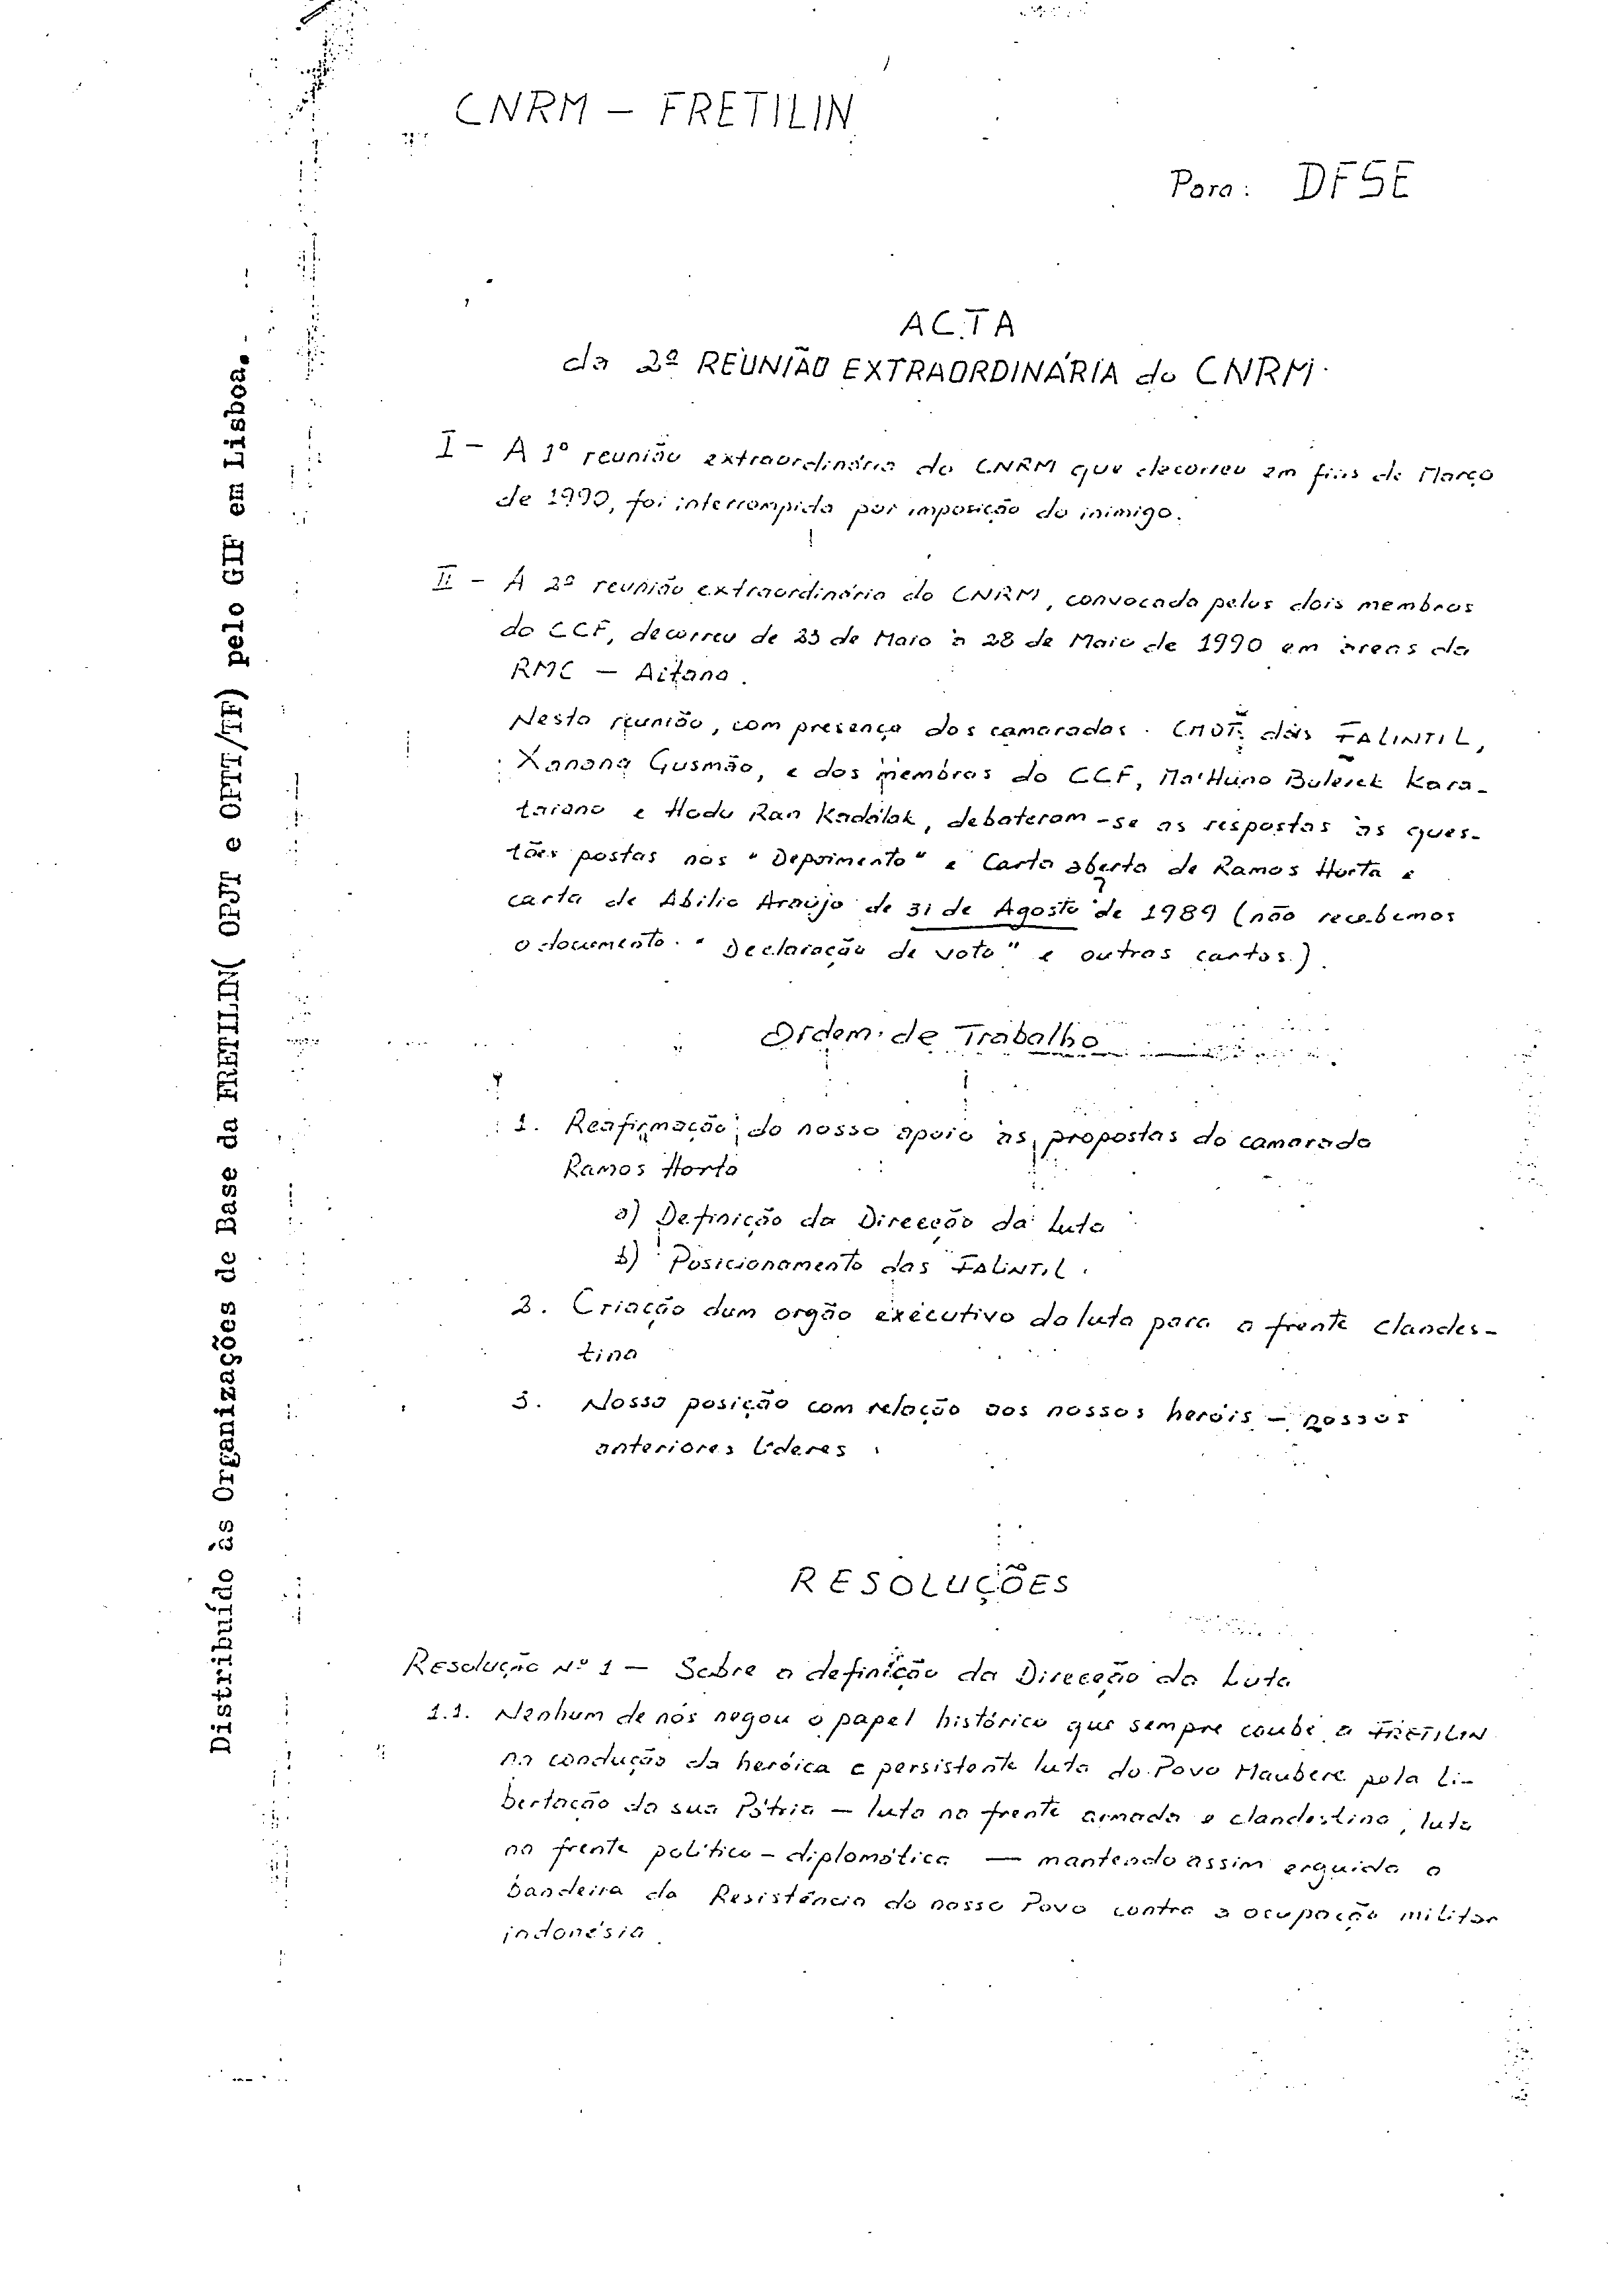 CNRM – FRETILIN
Para: DFSE
ACTA
da 2ª REUNIÃO EXTRAORDINÁRIA do CNRM
I – A 1ª reunião extraordinária do CNRM que decorreu em fins de Março
de 1990, foi interrompida por imposição do inimigo.
II – A 2ª reunião extraordinária do CNRM, convocada pelos dois membros
do CCF, decorreu de 23 de Maio a 28 de Maio de 1990 em áreas da
RMC – Aitana.
Nesta reunião, com presença dos camaradas CMDT. das FALINTIL,
Xanana Gusmão, e dos membros do CCF, Ma'Huno Bulerek Kara-
taiano e Hodu Ran Kadalak, debateram-se as respostas às ques-
tões postas nos "Depoimento" e Carta aberta de Ramos Horta e
carta de Abílio Araújo de 31 de Agosto de 1989 (não recebemos
o documento "Declaração de voto" e outras cartas.).
Ordem de Trabalho
1. Reafirmação do nosso apoio às propostas do camarada
Ramos Horta
a) Definição da Direcção da Luta
b) Posicionamento das FALINTIL.
2. Criação dum orgão executivo da luta para a frente clandes-
tina
3. Nossa posição com relação aos nossos heróis – nossos
anteriores líderes
RESOLUÇÕES
Resolução Nº 1 – Sobre a definição da Direcção da Luta
1.1. Nenhum de nós negou o papel histórico que sempre coube a FRETILIN
na condução da heróica e persistente luta do Povo Maubere pela li-
bertação da sua Pátria – luta na frente armada e clandestina, luta
na frente político-diplomática — mantendo assim erguida a
bandeira da Resistência do nosso Povo contra a ocupação militar
indonésia.
Distribuído às Organizações de Base da FRETILIN( OPJT e OPTT/TF) pelo GIF em Lisboa.